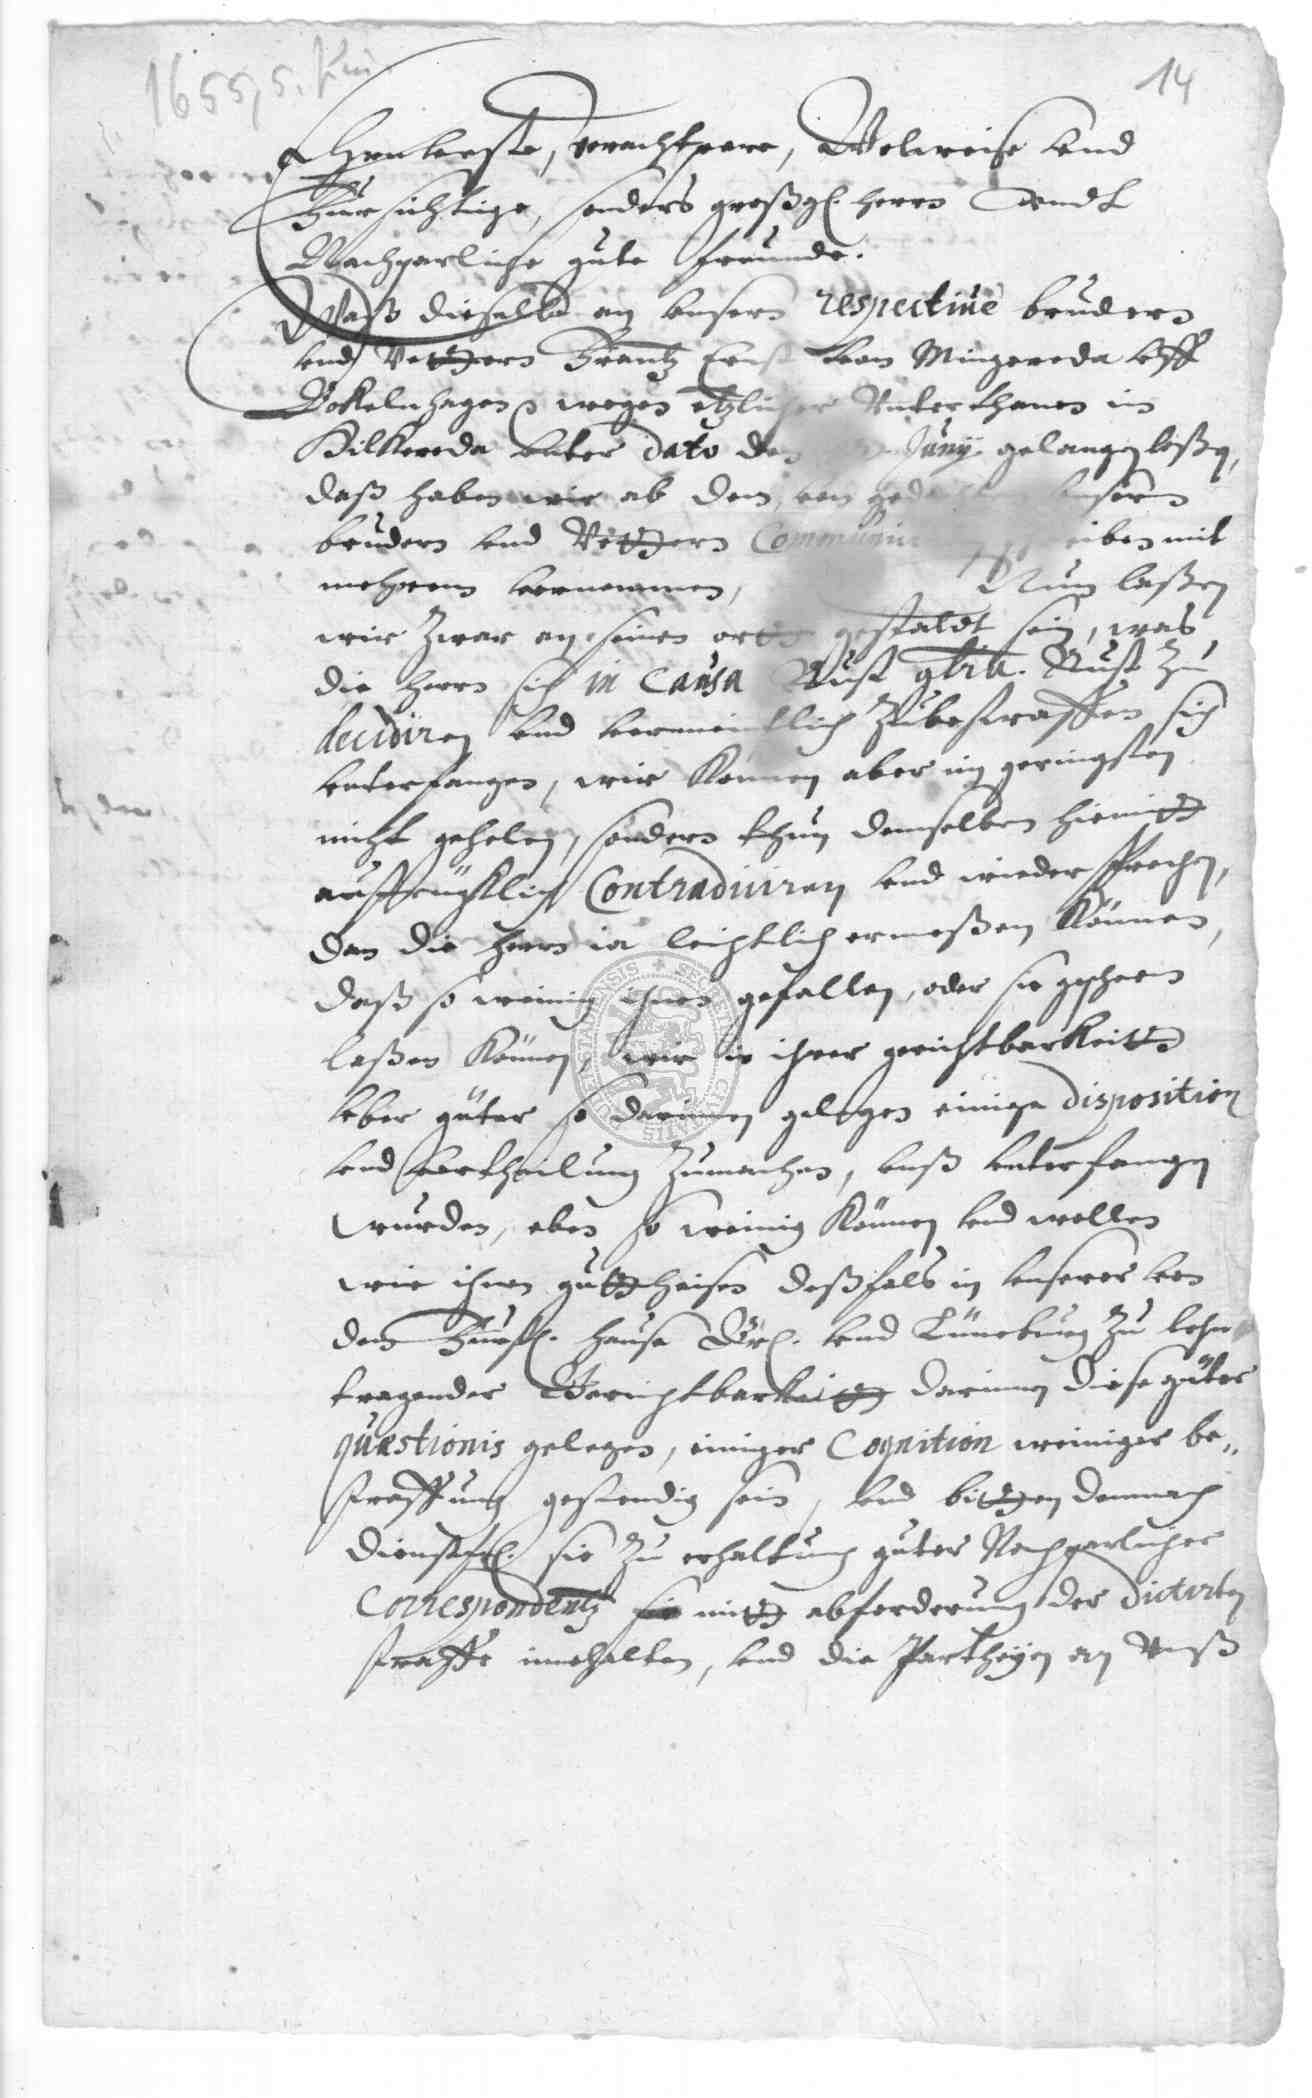 1655, 5. Juni
14
Ehrnveste, Vorachtpare, Wolweise vnd
Fürsichtige, sonders großg. Herrn vndt
Nachparliche gute freunde.
Waß dieselbe an vnsern respectiue brudern
vnd Vettern Frantz Ernst von Mingeroda vff
Bokelnhagen wegen etzlicher Vnterthanen in
Hilkeroda vnter dato den Junÿ gelangen laßen,
daß haben wir ab dem, von vnserm
brudern vnd Vettern schreiben mit
mehrem vernommen, Nun laßen
wir zwar an seinen ortt gestaldt sein, was
die Herrn sich in causa Rust contra Rust zu
decidiren vnd vermeintlich zubestraffen sich
vnterfangen, wir können aber im geringsten
nicht gehelen, sondern thun demselben hiemitt
außtrücklich Contradiciren vnd wiedersprechen,
den die Herrn ia leichtlich ermeßen können,
daß so weinig ihnen gefallen, oder sie geschehen
laßen können, wir in ihrer gerichtbarkeitt
vber güter so darinnen gelegen einige disposition
vnd vertheilung zumachen, vnß vnterfangen
wurden, eben so weinig können vnd wollen
wir ihnen guttheisen deßfals in vnserer von
dem Fürstl. Hause Br. vnd Lüneburg zu lehn
tragender Gerichtbarkeitt darinnen diese güter
quæstionis gelegen, einiger Cognition weiniger be„
straffung gestendig sein, vnd bitten demnach
dienstl. sie zu erhaltung guter Nachparlicher
Correspondentz mitt abforderung der dictirten
straffe innehalten, vnd die Partheyen an Vnß